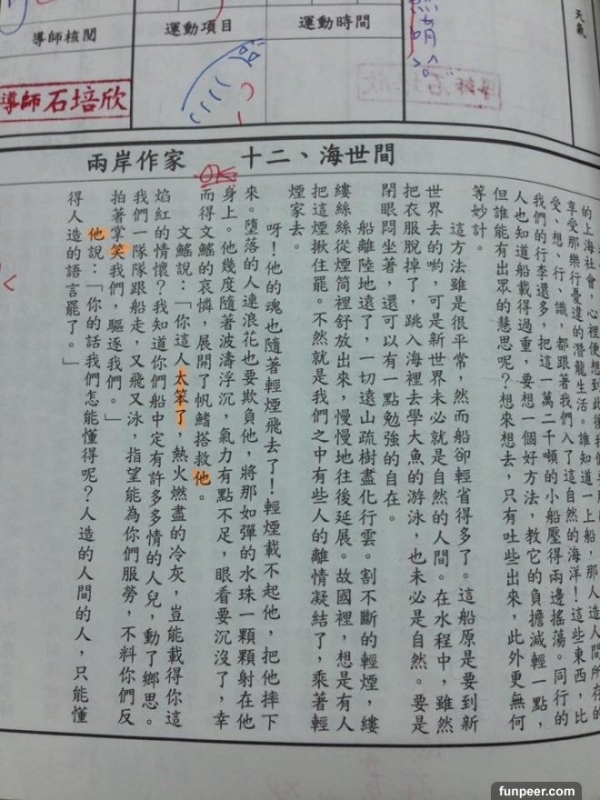 天氣
運動時間
運動項目
導師核閱
導師石培欣
兩岸作家　十二、海世間
的上海社會，心裡便想到此後我們
享受那樂行憂違的潛龍生活。誰知道一上船，那人造人間所存的
受、想、行、識，都跟著我們入了這自然的海洋！這些東西，比
我們的行李還多，把這一萬二千噸的小船壓得兩邊搖蕩。同行的
人也知道船載得過重，要想一個好方法，教它的負擔減輕一點，
但誰能有出眾的慧思呢？想來想去，只有吐些出來，此外更無何
等妙計。
這方法雖是很平常，然而船卻輕省得多了。這船原是要到新
世界去的喲，可是新世界未必就是自然的人間。在水程中，雖然
把衣服脫掉了，跳入海裡去學大魚的游泳，也未必是自然。要是
閉眼悶坐著，還可以有一點勉強的自在。
船離陸地遠了，一切遠山疏樹盡化行雲。割不斷的輕煙，縷
縷絲絲從煙筒裡舒放出來，慢慢地往後延展。故國裡，想是有人
把這煙揪住罷。不然就是我們之中有些人的離情凝結了，乘著輕
煙家去。
呀！他的魂也隨著輕煙飛去了！輕煙載不起他，把他摔下
來。墮落的人連浪花也要欺負他，將那如彈的水珠一顆顆射在他
身上。他幾度隨著波濤浮沉，氣力有點不足，眼看要沉沒了，幸
而得文鰩的哀憐，展開了帆鰭搭救他。
文鰩說：「你這人太笨了，熱火燃盡的冷灰，豈能載得你這
焰紅的情懷？我知道你們船中定有許多多情的人兒，動了鄉思。
我們一隊隊跟船走，又飛又泳，指望能為你們服勞，不料你們反
拍著掌笑我們，驅逐我們。」
他說：「你的話我們怎能懂得呢？人造的人間的人，只能懂
得人造的語言罷了。」
funpeer.com